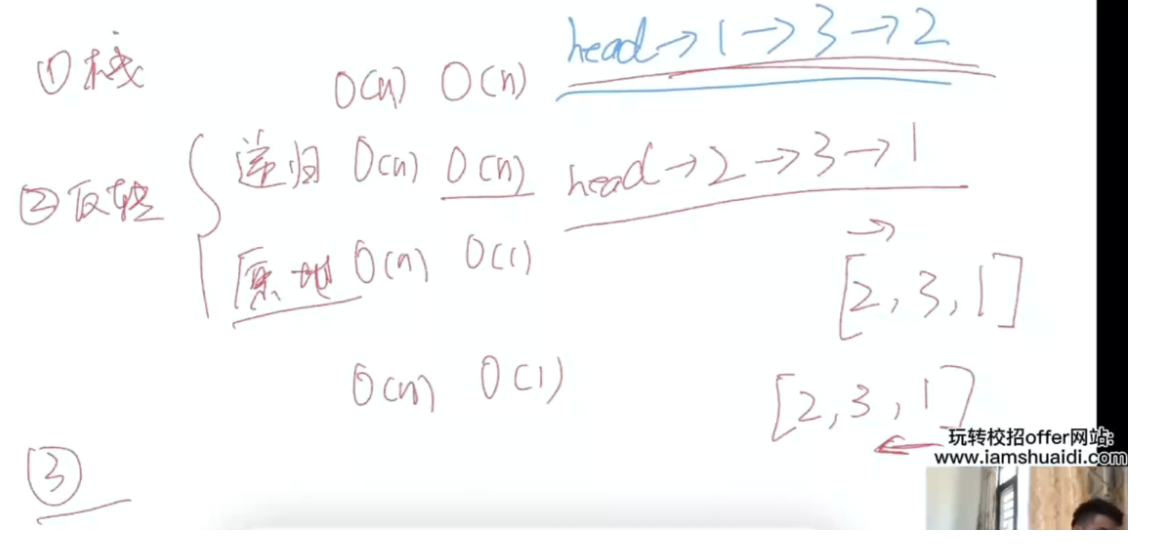 head→1→3→2
①栈 O(n) O(n)
②反转
递归 O(n) O(n) head→2→3→1
原地 O(n) O(1)
→
[2,3,1]
O(n) O(1) [2,3,1]
←
玩转校招offer网站:
www.iamshuaidi.com
③